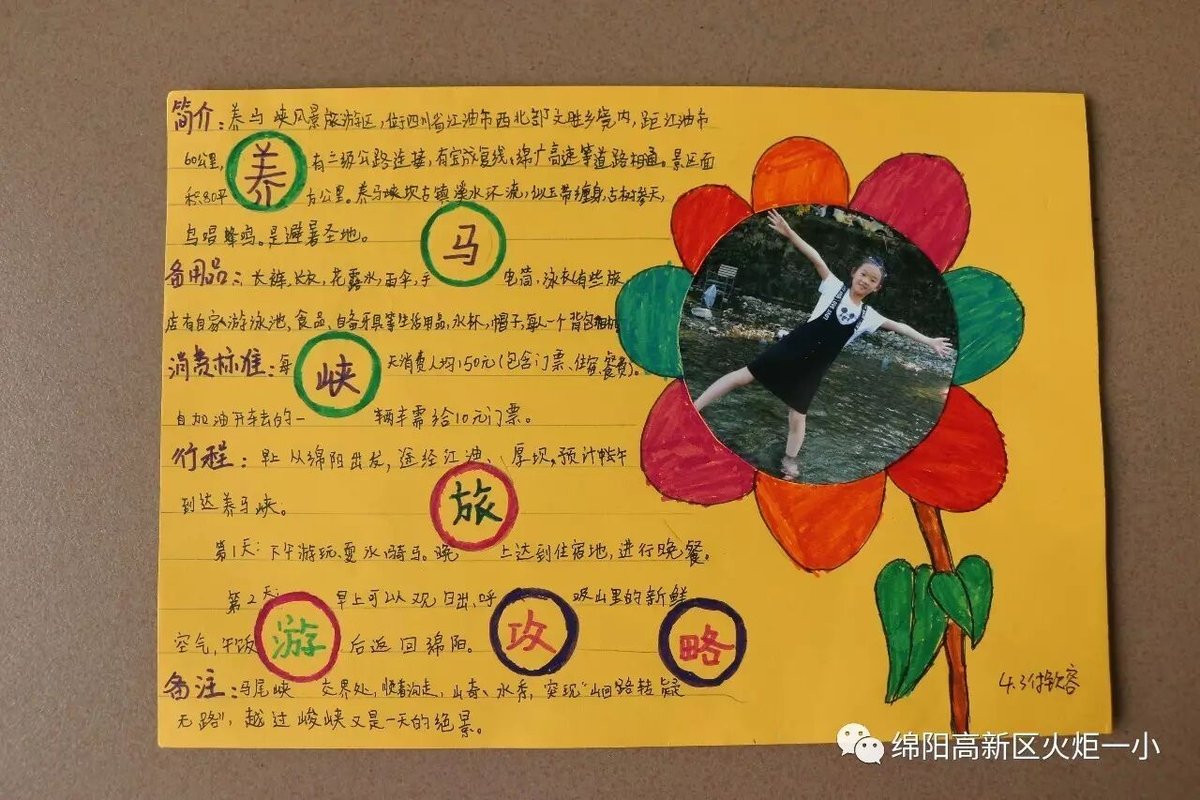 简介：养马峡风景旅游区，位于四川省江油市西北部文胜乡境内，距江油市
60公里，养有三级公路连接，有宝成复线、绵广高速等道路相通。景区面
积80平方公里。养马峡坝古镇溪水环流，似玉带缠身，古树参天，
鸟唱蜂鸣。是避暑圣地。马
备用品：长裤，长衣，花露水，雨伞，手电筒，泳衣有些旅
店有自家游泳池，食品、自备牙具等生活用品，水杯，帽子，每人一个背包
消费标准：每峡天消费人均150元（包含门票、住宿、餐费）。
自加油开车去的一辆车需给10元门票。
行程：早上从绵阳出发，途经江油、厚坝，预计中午
到达养马峡。旅
第1天：下午游玩、耍水、骑马。晚上达到住宿地，进行晚餐。
第2天：早上可以观日出，呼吸山里的新鲜
空气，午饭游后返回绵阳。攻略
备注：马尾峡交界处，顺着沟走，山奇、水秀，突现“山回路转疑
无路”，越过峻峡又是一天的绝景。
4.3付
绵阳高新区火炬一小